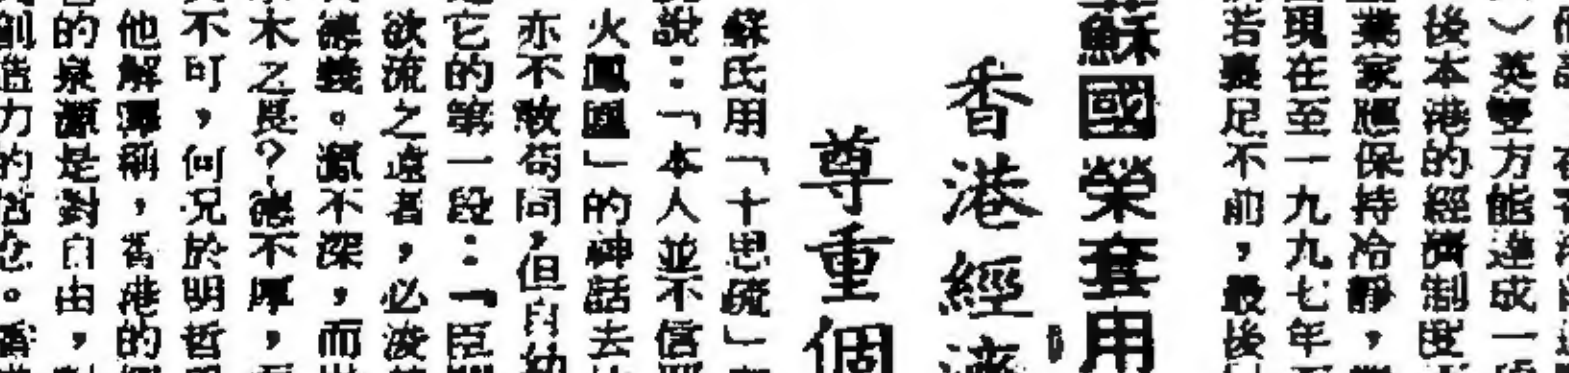 英雙方能達成一
後本港的經濟制度
業家應保持冷靜，
現在至一九九七年
若裹足不前，最後
蘇國榮套用
香港經濟
尊重個
蘇氏用「十思疏」
說：「本人並不信
火鳳凰」的神話去
亦不敢苟同，但自幼
它的第一段：「臣聞
欲流之遠者，必浚
德義。源不深，而
木之長？德不厚，
不可，何況於明哲
他解釋稱，香港的
的泉源是對自由，
創造力的信念。